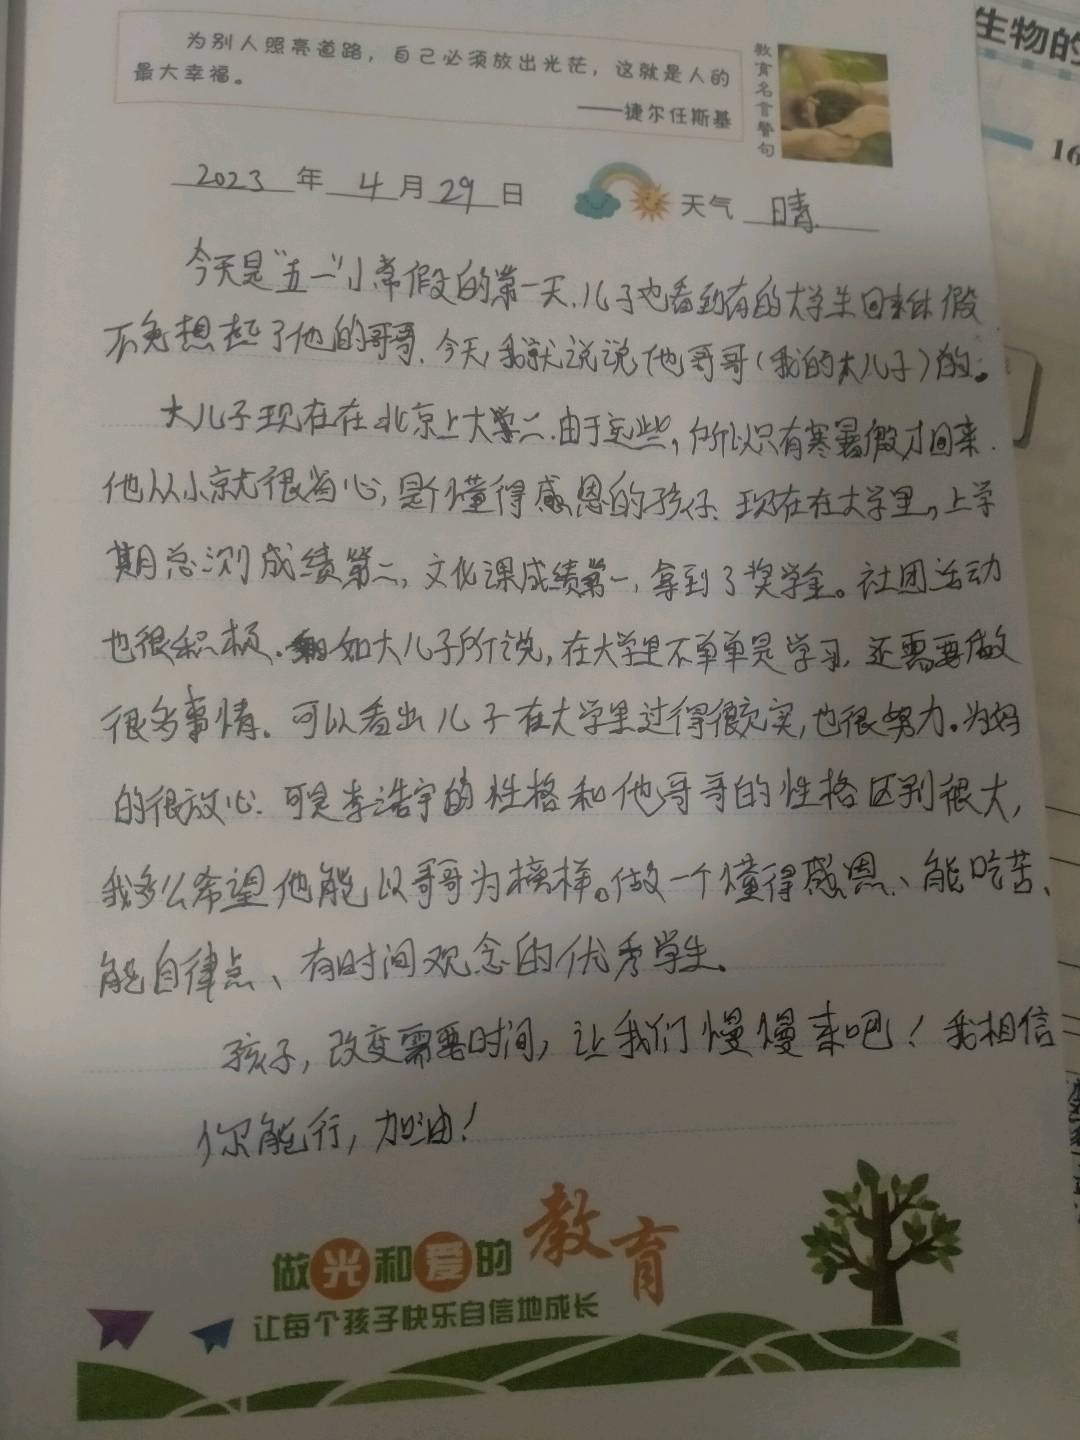 为别人照亮道路，自己必须放出光芒，这就是人的
最大幸福。
——捷尔任斯基
教育名言警句
生物的
16
2023 年 4 月 29 日 天气 晴
今天是“五一”小常假的第一天，儿子也看到有的大学生回来休假
不免想起了他的哥哥，今天，我就说说他哥哥（我的大儿子）的。
大儿子现在在北京上大学二，由于这些，所以只有寒暑假才回来．
他从小就很省心，是个懂得感恩的孩子、现在在大学里，上学
期总测成绩第二，文化课成绩第一，拿到了奖学金。社团活动
也很积极．如大儿子所说，在大学里不单单是学习，还需要做
很多事情。可以看出儿子在大学里过得很充实，也很努力。为妈
的很放心．可是李浩宇的性格和他哥哥的性格区别很大，
我多么希望他能以哥哥为榜样。做一个懂得感恩、能吃苦、
能自律点、有时间观念的优秀学生。
孩子，改变需要时间，让我们慢慢来吧！我相信
你能行，加油！
做光和爱的教育
让每个孩子快乐自信地成长